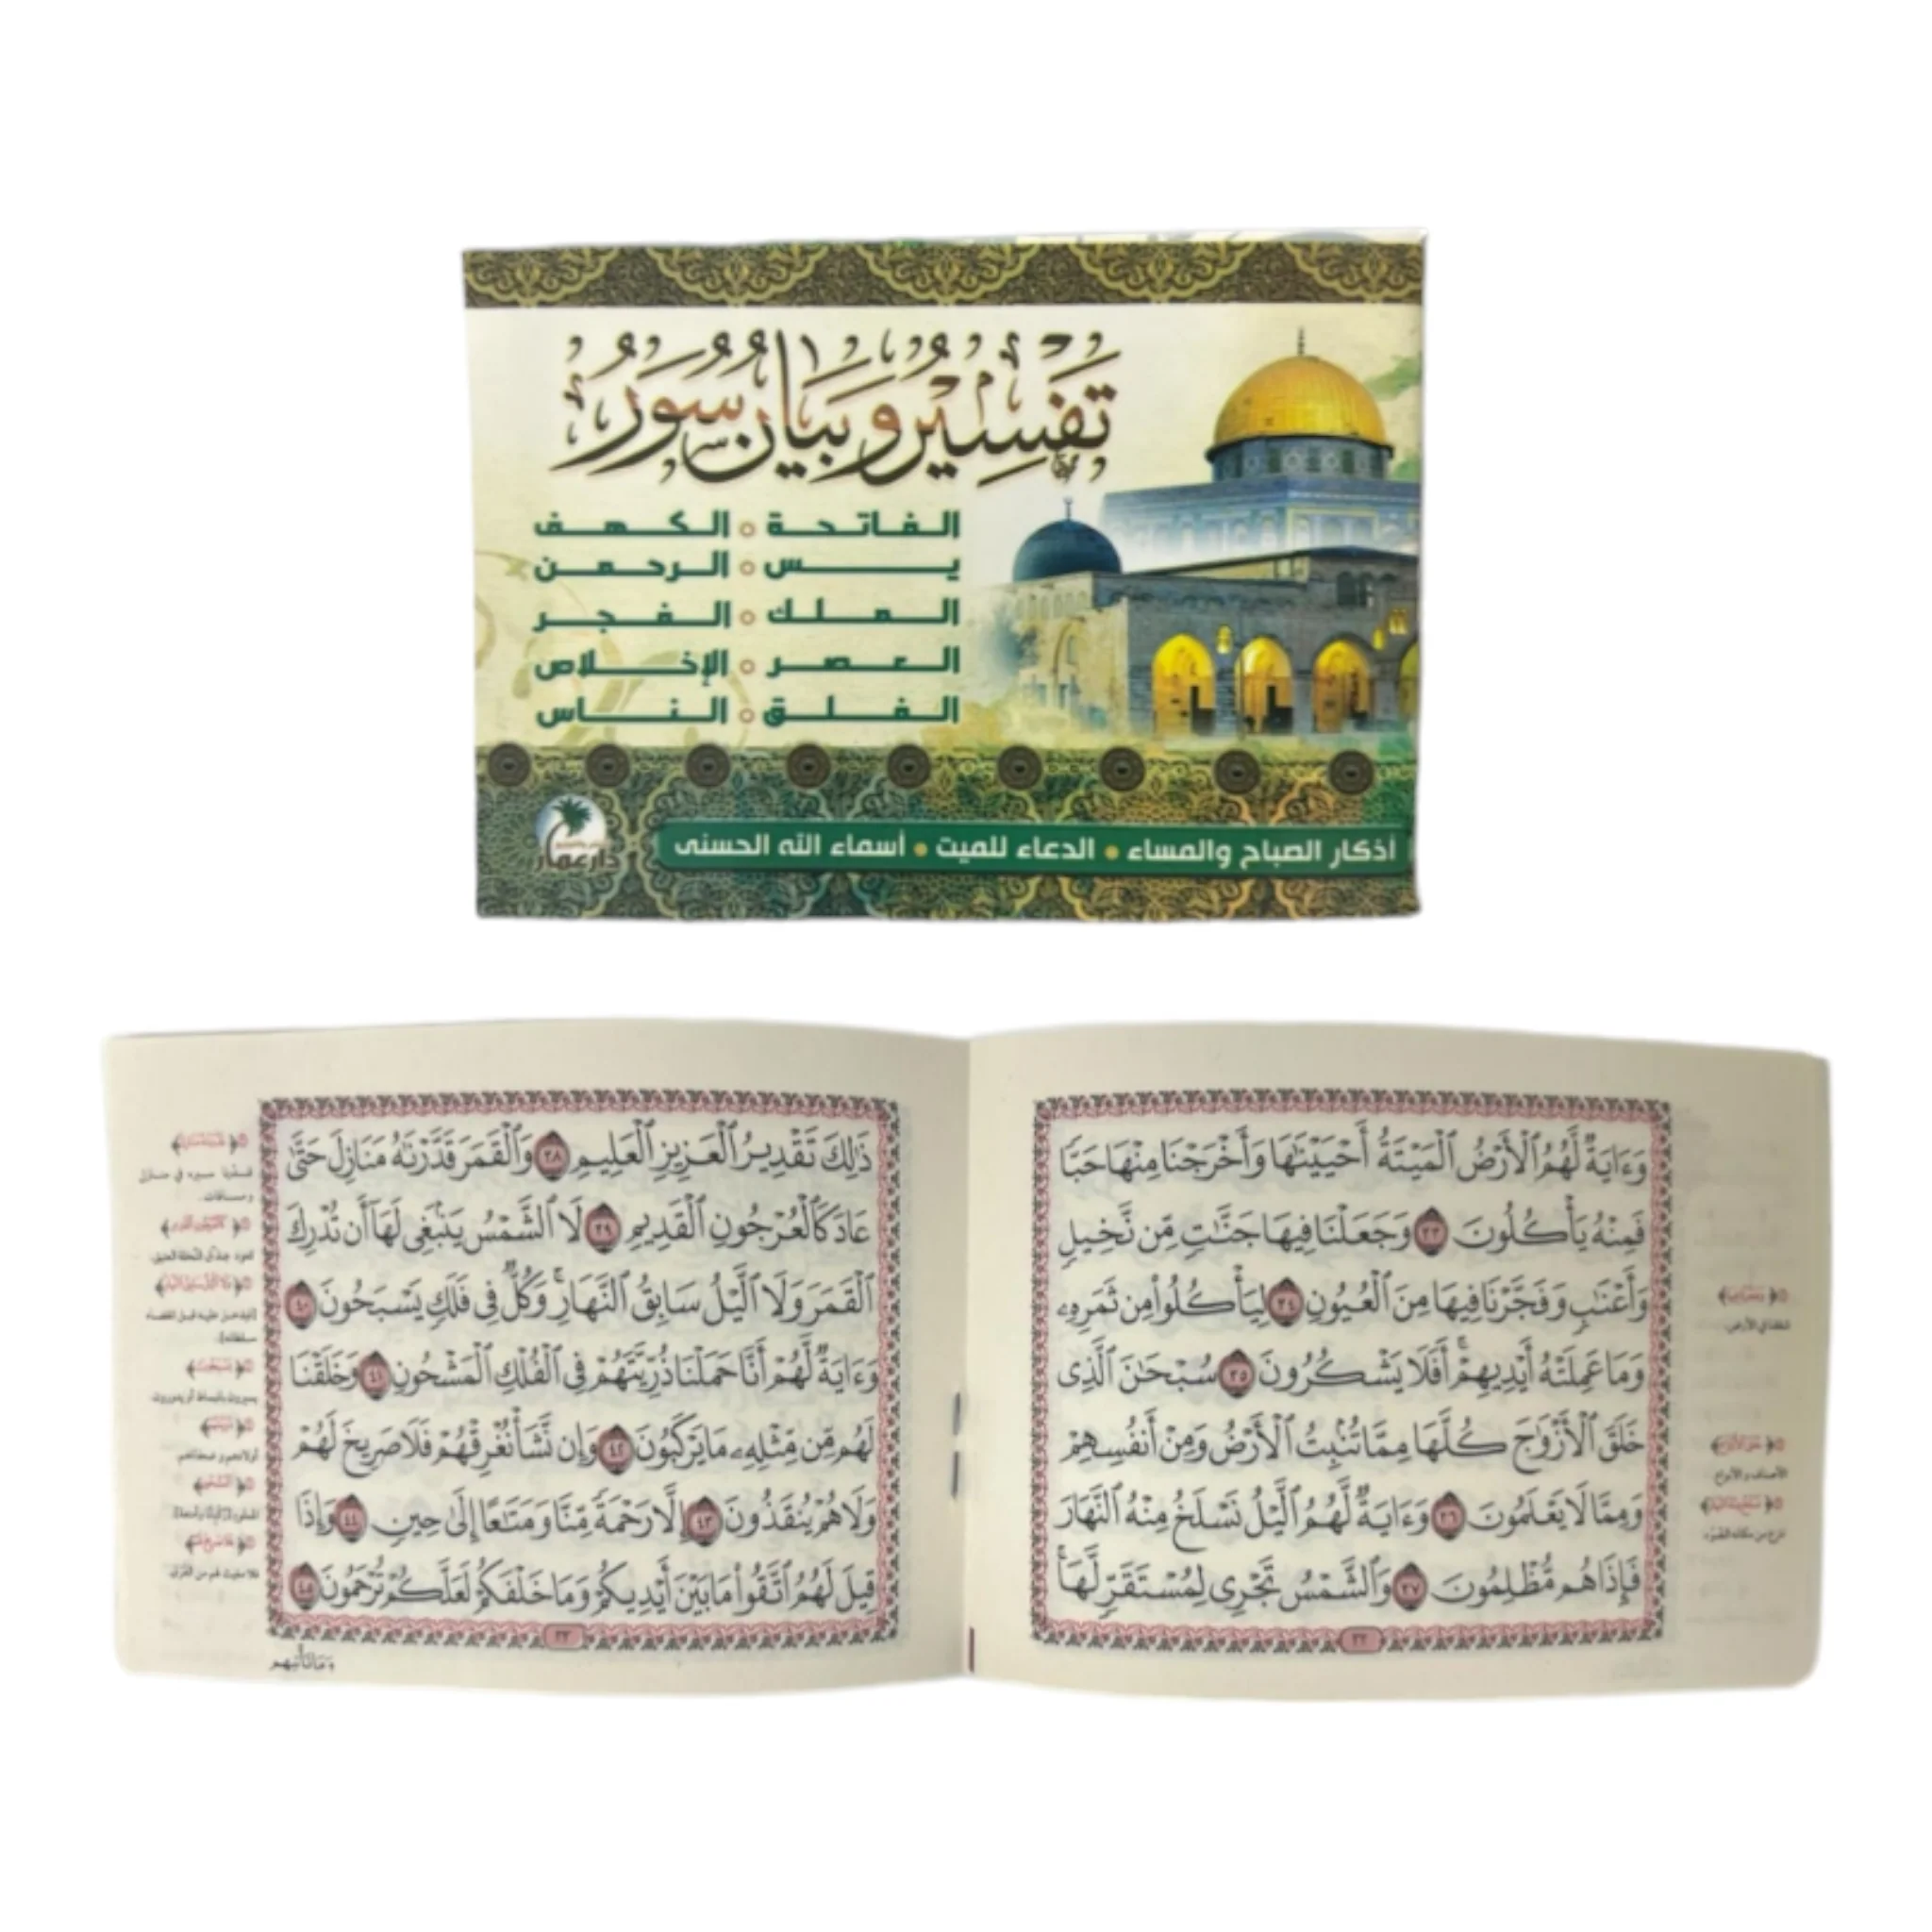 تفسير وبيان سور
الفاتحة ٥ الكهف
يس ٥ الرحمن
الملك ٥ الفجر
العصر ٥ الإخلاص
الفلق ٥ الناس
أذكار الصباح والمساء • الدعاء للميت • أسماء الله الحسنى
دار عمار
وَءَايَةٌ لَّهُمُ ٱلْأَرْضُ ٱلْمَيْتَةُ أَحْيَيْنَٰهَا وَأَخْرَجْنَا مِنْهَا حَبًّا
فَمِنْهُ يَأْكُلُونَ ٣٣ وَجَعَلْنَا فِيهَا جَنَّٰتٍ مِّن نَّخِيلٍ
وَأَعْنَٰبٍ وَفَجَّرْنَا فِيهَا مِنَ ٱلْعُيُونِ ٣٤ لِيَأْكُلُوا۟ مِن ثَمَرِهِۦ
وَمَا عَمِلَتْهُ أَيْدِيهِمْ ۖ أَفَلَا يَشْكُرُونَ ٣٥ سُبْحَٰنَ ٱلَّذِى
خَلَقَ ٱلْأَزْوَٰجَ كُلَّهَا مِمَّا تُنۢبِتُ ٱلْأَرْضُ وَمِنْ أَنفُسِهِمْ
وَمِمَّا لَا يَعْلَمُونَ ٣٦ وَءَايَةٌ لَّهُمُ ٱلَّيْلُ نَسْلَخُ مِنْهُ ٱلنَّهَارَ
فَإِذَا هُم مُّظْلِمُونَ ٣٧ وَٱلشَّمْسُ تَجْرِى لِمُسْتَقَرٍّ لَّهَا ۚ
٢٢
ذَٰلِكَ تَقْدِيرُ ٱلْعَزِيزِ ٱلْعَلِيمِ ٣٨ وَٱلْقَمَرَ قَدَّرْنَٰهُ مَنَازِلَ حَتَّىٰ
عَادَ كَٱلْعُرْجُونِ ٱلْقَدِيمِ ٣٩ لَا ٱلشَّمْسُ يَنۢبَغِى لَهَآ أَن تُدْرِكَ
ٱلْقَمَرَ وَلَا ٱلَّيْلُ سَابِقُ ٱلنَّهَارِ ۚ وَكُلٌّ فِى فَلَكٍ يَسْبَحُونَ ٤٠
وَءَايَةٌ لَّهُمْ أَنَّا حَمَلْنَا ذُرِّيَّتَهُمْ فِى ٱلْفُلْكِ ٱلْمَشْحُونِ ٤١ وَخَلَقْنَا
لَهُم مِّن مِّثْلِهِۦ مَا يَرْكَبُونَ ٤٢ وَإِن نَّشَأْ نُغْرِقْهُمْ فَلَا صَرِيخَ لَهُمْ
وَلَا هُمْ يُنقَذُونَ ٤٣ إِلَّا رَحْمَةً مِّنَّا وَمَتَٰعًا إِلَىٰ حِينٍ ٤٤ وَإِذَا
قِيلَ لَهُمُ ٱتَّقُوا۟ مَا بَيْنَ أَيْدِيكُمْ وَمَا خَلْفَكُمْ لَعَلَّكُمْ تُرْحَمُونَ ٤٥
٢٣
وَمَا تَأْتِيهِم